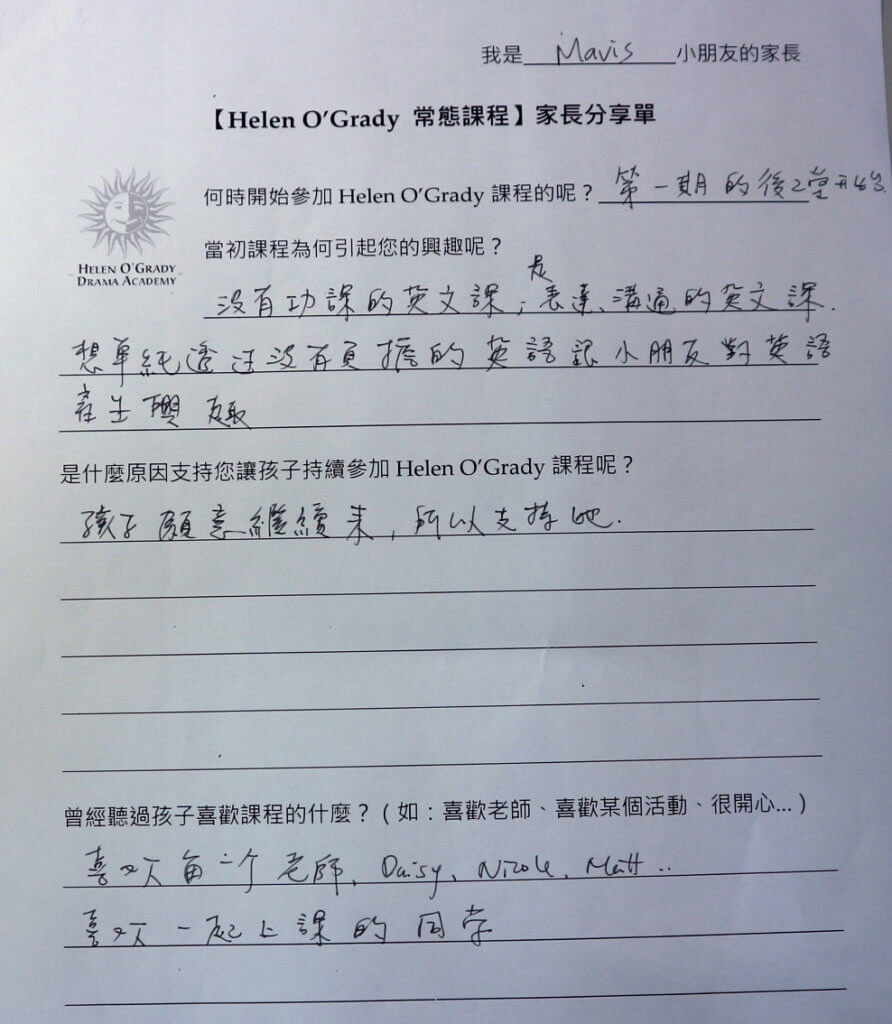 我是 Mavis 小朋友的家長
【Helen O'Grady 常態課程】家長分享單
何時開始參加 Helen O'Grady 課程的呢？第一期的後2堂开始.
HELEN O'GRADY
DRAMA ACADEMY
當初課程為何引起您的興趣呢？
沒有功課的英文課，是表達、溝通的英文課.
想單純透过沒有負擔的英語讓小朋友對英語
產生興趣
是什麼原因支持您讓孩子持續參加 Helen O'Grady 課程呢？
孩子願意繼續来，所以支持她.
曾經聽過孩子喜歡課程的什麼？（如：喜歡老師、喜歡某個活動、很開心...）
喜欢每一个老師, Daisy、Nicole、Matt..
喜欢一起上課的同学